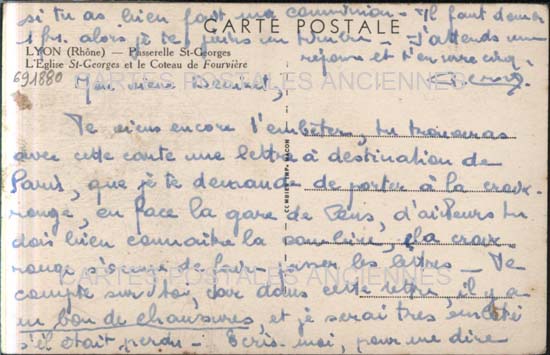 si tu as bien fait ma commission. Il faut donner
CARTE POSTALE
1 fr. alors je te joins un timbre – J'attends une
LYON (Rhône) — Passerelle St-Georges
réponse et t'envoie cinq
L'Eglise St-Georges et le Coteau de Fourvière
691880
CARTES POSTALES ANCIENNES
mon vieux
Je viens encore t'embêter, tu trouveras
avec cette carte une lettre à destination de
Paris, que je te demande de porter à la croix-
rouge, en face la gare de Sens, d'ailleurs tu
dois bien connaître la combine, la croix
rouge s'occupe de faire passer les lettres – Je
CARTES POSTALES ANCIENNES
compte sur toi, car dans cette lettre, il y a
un bon de chaussures, et je serai très embêté
s'il était perdu – Ecris-moi, pour me dire
COMBIER IMP. MACON